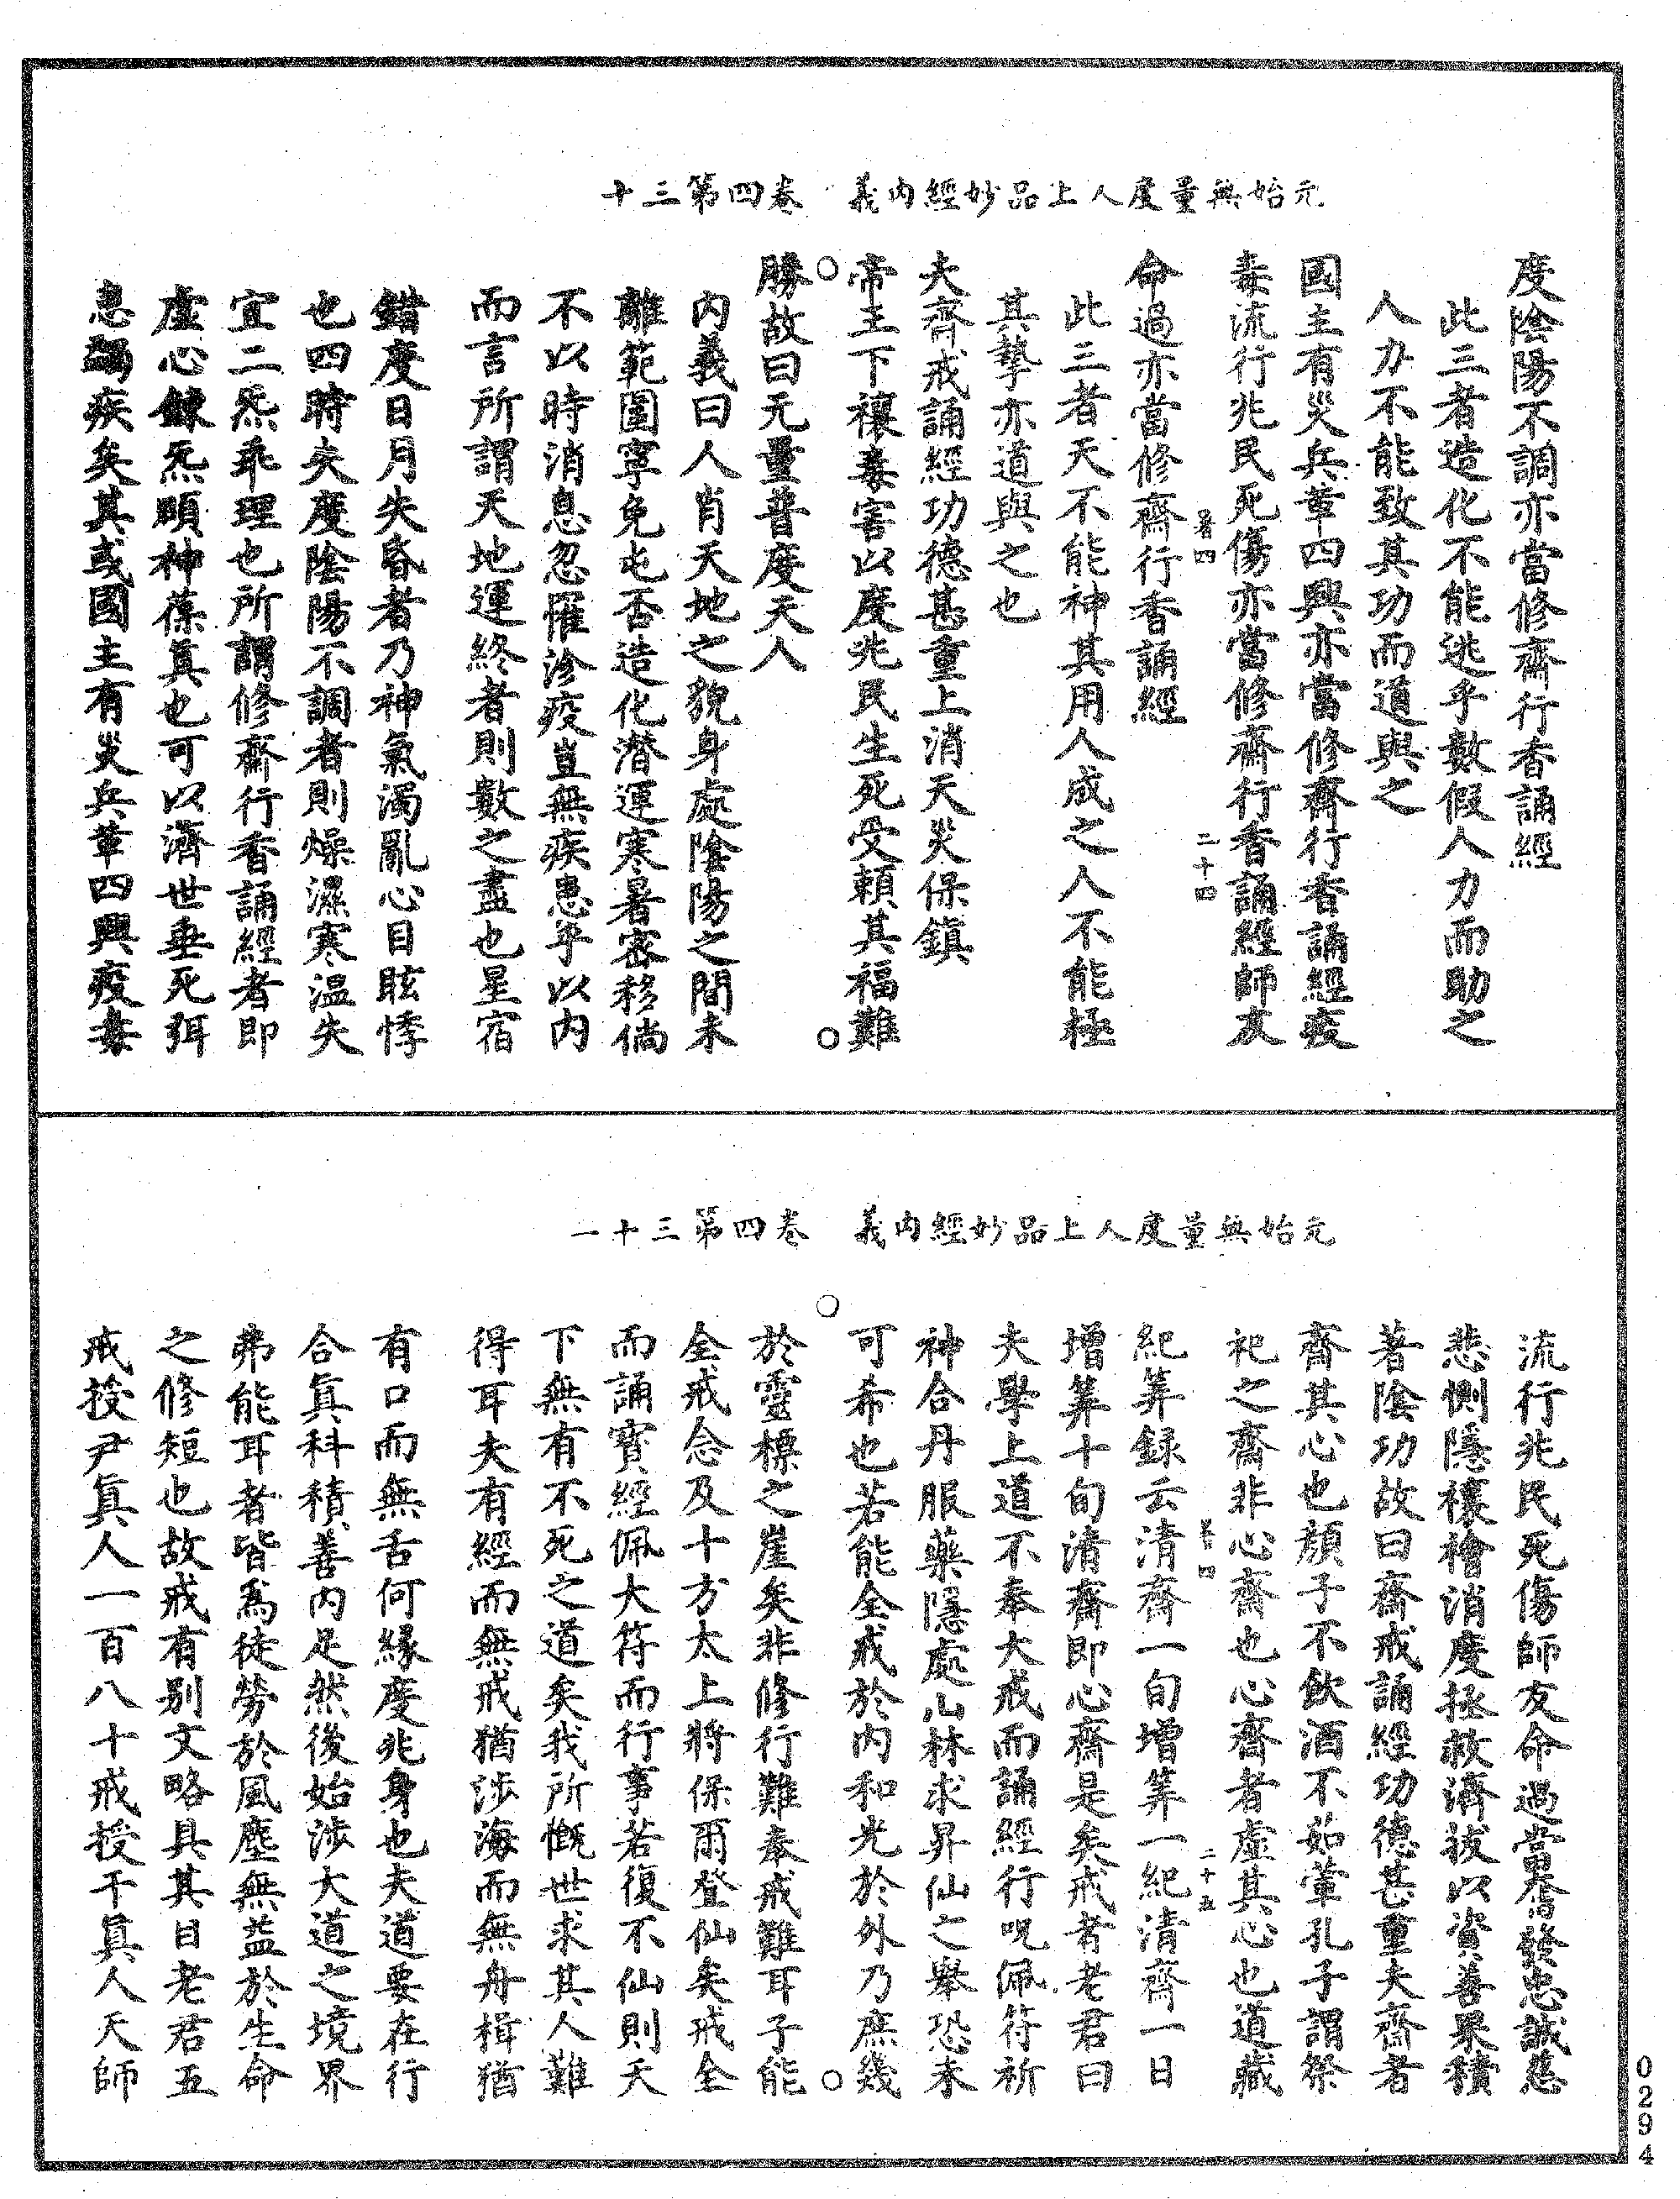 元始無量度人上品妙經內義　卷四第三十
度陰陽不調亦當修齋行香誦經
此三者造化不能逃乎數假人力而助之
人力不能致其功而道與之
國主有災兵革四興亦當修齋行香誦經疫
毒流行兆民死傷亦當修齋行香誦經師友
卷四　二十四
命過亦當修齋行香誦經
此三者天不能神其用人成之人不能極
其摯亦道與之也
夫齋戒誦經功德甚重上消天災保鎮
帝王下禳毒害以度兆民生死受賴其福難
勝故曰无量普度天人
內義曰人肖天地之貌身處陰陽之間未
離範圍寧免屯否造化潛運寒暑密移倘
不以時消息忽罹沴疫豈無疾患乎以内
而言所謂天地運終者則數之盡也星宿
錯度日月失昏者乃神氣濁亂心目眩悸
也四時失度陰陽不調者則燥濕寒温失
宜二炁乖理也所謂修齋行香誦經者即
虛心鍊炁頤神葆眞也可以濟世垂死弭
患蠲疾矣其或國主有災兵革四興疫毒
元始無量度人上品妙經內義　卷四第三十一
流行兆民死傷師友命過當畧舊發忠誠慈
悲惻隱禳禬消度拯救濟拔以資善果積
著陰功故曰齋戒誦經功德甚重夫齋者
齊其心也顏子不飲酒不茹葷孔子謂祭
祀之齋非心齋也心齋者虛其心也道藏
卷四　二十五
紀筭録云清齋一旬增筭一紀清齋一日
增筭十旬清齋即心齋是矣戒者老君曰
夫學上道不奉大戒而誦經行呪佩符祈
神合丹服藥隱處山林求昇仙之舉恐未
可希也若能全戒於内和光於外乃庶幾
於靈標之崖矣非修行難奉戒難耳子能
全戒念及十方太上將保爾登仙矣戒全
而誦寶經佩大符而行事若復不仙則天
下無有不死之道矣我所慨世求其人難
得耳夫有經而無戒猶涉海而無舟楫猶
有口而無舌何緣度兆身也夫道要在行
合眞科積善内足然後始涉大道之境界
弗能耳者皆爲徒勞於風塵無益於生命
之修短也故戒有別文略具其目老君五
戒授尹眞人一百八十戒授干眞人天師
0294